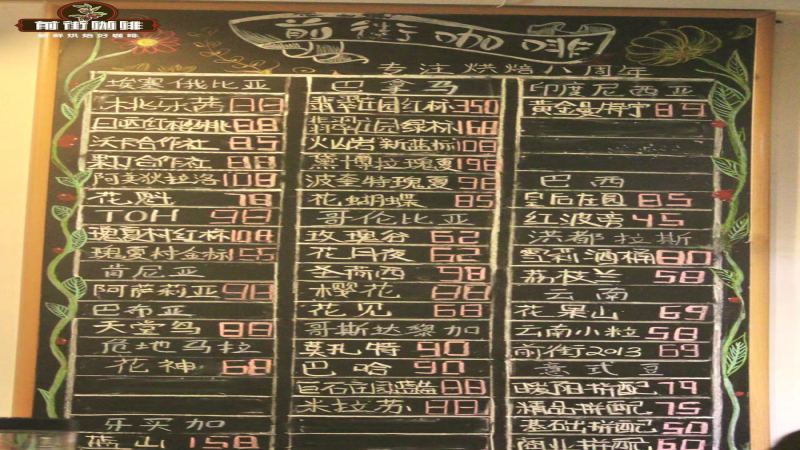 前街咖啡
新鲜烘焙好咖啡
前街咖啡
专注烘焙八周年
埃塞俄比亚
88
日晒红樱桃 88
沃卡合作社 85
果丁合作社 88
阿芙狄拉洛 108
花魁 78
TOH 98
瑰夏村红标 108
瑰夏村金标 155
肯尼亚
阿萨莉亚 98
巴布亚
天堂鸟 88
危地马拉
花神 68
牙买加
蓝山 158
巴拿马
翡翠庄园红标 350
翡翠庄园绿标 168
火山岩新蓝标 108
黛博拉瑰夏 198
波奎特瑰夏 98
花蝴蝶 85
哥伦比亚
玫瑰谷 62
花月夜 62
圣荷西 98
樱花 80
花见 68
哥斯达黎加
莫扎特 90
巴哈 90
巨石庄园蓝 88
米拉苏 88
印度尼西亚
黄金曼特宁 89
巴西
皇后庄园 85
红波旁 45
洪都拉斯
雪莉酒桶 80
荔枝兰 58
云南
花果山 69
云南小粒 58
前街2013 69
意式豆
暖阳拼配 79
精品拼配 75
基础拼配 50
商业拼配 60